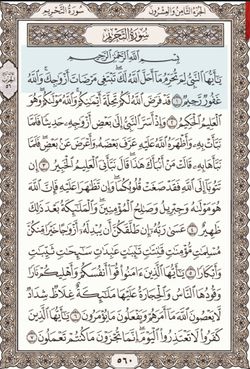 الجزء الثامن والعشرون سورة التحريم
سورة التحريم
بسم الله الرحمن الرحيم
يَٰٓأَيُّهَا ٱلنَّبِيُّ لِمَ تُحَرِّمُ مَآ أَحَلَّ ٱللَّهُ لَكَۖ تَبۡتَغِي مَرۡضَاتَ أَزۡوَٰجِكَۚ وَٱللَّهُ
غَفُورٞ رَّحِيمٞ ١ قَدۡ فَرَضَ ٱللَّهُ لَكُمۡ تَحِلَّةَ أَيۡمَٰنِكُمۡۚ وَٱللَّهُ مَوۡلَىٰكُمۡۖ وَهُوَ
ٱلۡعَلِيمُ ٱلۡحَكِيمُ ٢ وَإِذۡ أَسَرَّ ٱلنَّبِيُّ إِلَىٰ بَعۡضِ أَزۡوَٰجِهِۦ حَدِيثٗا فَلَمَّا
نَبَّأَتۡ بِهِۦ وَأَظۡهَرَهُ ٱللَّهُ عَلَيۡهِ عَرَّفَ بَعۡضَهُۥ وَأَعۡرَضَ عَنۢ بَعۡضٖۖ فَلَمَّا
نَبَّأَهَا بِهِۦ قَالَتۡ مَنۡ أَنۢبَأَكَ هَٰذَاۖ قَالَ نَبَّأَنِيَ ٱلۡعَلِيمُ ٱلۡخَبِيرُ ٣ إِن
تَتُوبَآ إِلَى ٱللَّهِ فَقَدۡ صَغَتۡ قُلُوبُكُمَاۖ وَإِن تَظَٰهَرَا عَلَيۡهِ فَإِنَّ ٱللَّهَ
هُوَ مَوۡلَىٰهُ وَجِبۡرِيلُ وَصَٰلِحُ ٱلۡمُؤۡمِنِينَۖ وَٱلۡمَلَٰٓئِكَةُ بَعۡدَ ذَٰلِكَ
ظَهِيرٌ ٤ عَسَىٰ رَبُّهُۥٓ إِن طَلَّقَكُنَّ أَن يُبۡدِلَهُۥٓ أَزۡوَٰجًا خَيۡرٗا مِّنكُنَّ
مُسۡلِمَٰتٖ مُّؤۡمِنَٰتٖ قَٰنِتَٰتٖ تَٰٓئِبَٰتٍ عَٰبِدَٰتٖ سَٰٓئِحَٰتٖ ثَيِّبَٰتٖ
وَأَبۡكَارٗا ٥ يَٰٓأَيُّهَا ٱلَّذِينَ ءَامَنُواْ قُوٓاْ أَنفُسَكُمۡ وَأَهۡلِيكُمۡ نَارٗا
وَقُودُهَا ٱلنَّاسُ وَٱلۡحِجَارَةُ عَلَيۡهَا مَلَٰٓئِكَةٌ غِلَاظٞ شِدَادٞ
لَّا يَعۡصُونَ ٱللَّهَ مَآ أَمَرَهُمۡ وَيَفۡعَلُونَ مَا يُؤۡمَرُونَ ٦ يَٰٓأَيُّهَا ٱلَّذِينَ
كَفَرُواْ لَا تَعۡتَذِرُواْ ٱلۡيَوۡمَۖ إِنَّمَا تُجۡزَوۡنَ مَا كُنتُمۡ تَعۡمَلُونَ ٧
٥٦٠